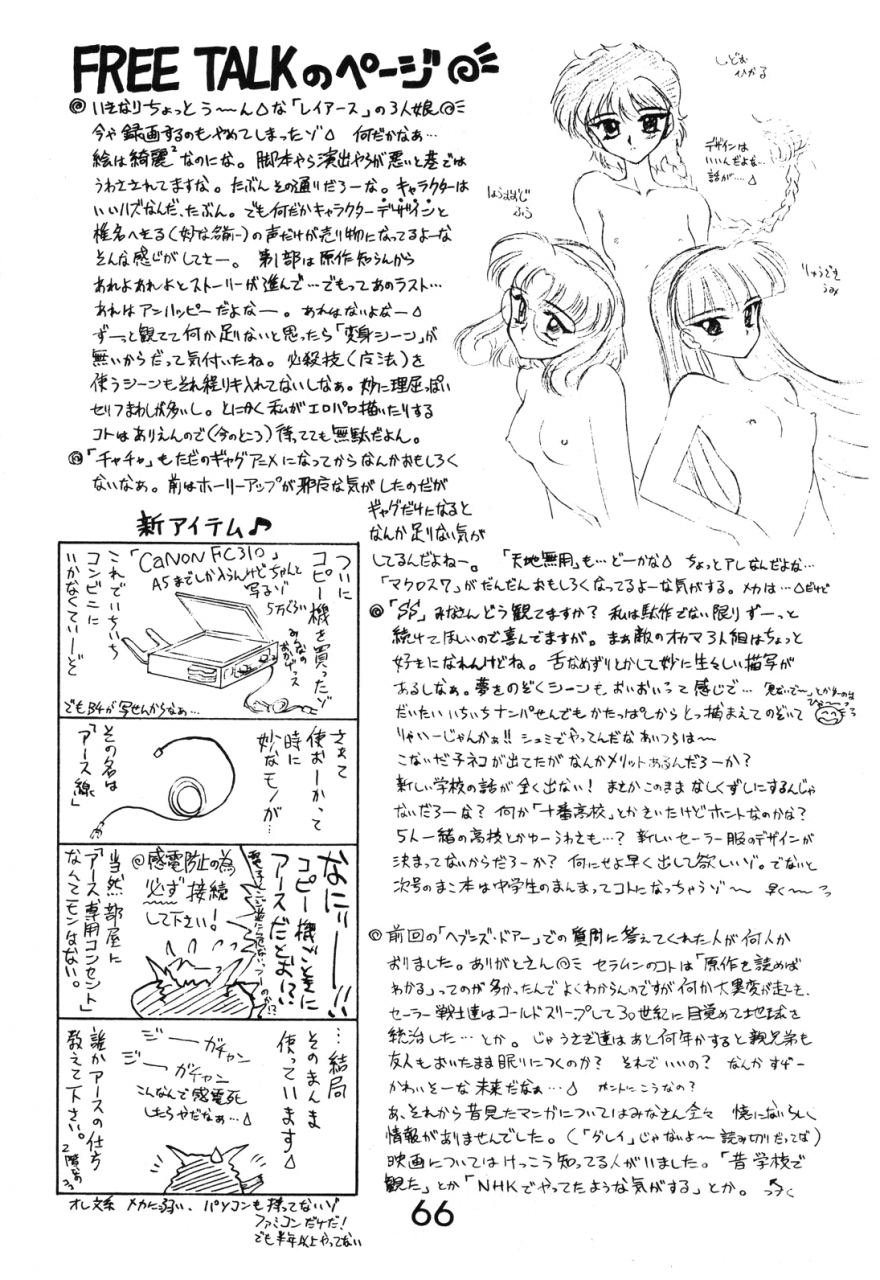 FREE TALKのページ
いきなりちょっとう〜〜ん△な「レイアース」の3人娘
今や録画するのもやめてしまったゾ△ 何だかなぁ…
絵は綺麗なのにな。脚本やら演出やらが悪いと巷では
うわさされてますな。たぶんその通りだろーな。キャラクターは
いいハズなんだ、たぶん。でも何だかキャラクターデザインと
椎名へきる(妙な名前ー)の声だけが売り物になってるよーな
そんな感じがしてさー。第1部は原作知らんから
あれよあれよとストーリーが進んで…でもってあのラスト…
あれはアンハッピーだよなー。あれはないよなー△
ずーっと観てて何か足りないと思ったら「変身シーン」が
無いからだって気付いたね。必殺技(魔法)を
使うシーンもそれ程リキ入れてないしなぁ。妙に理屈っぽい
セリフまわしが多いし。とにかく私がエロパロ描いたりする
コトはありえんので(今のところ)待ってても無駄だよん。
しどお
ひかる
デザインは
いいんだよな…
話が…△
ほうおおじ
ふう
りゅうざき
うみ
「チャチャ」もただのギャグアニメになってからなんかおもしろく
ないなぁ。前はホーリーアップが邪魔な気がしたのだが
ギャグだけになると
なんか足りない気が
してるんだよねー。「天地無用」も…どーかな△ ちょっとアレなんだよな…
「マクロス7」がだんだんおもしろくなってるよーな気がする。メカは…△だけど
「SS」みなさんどう観てますか? 私は駄作でない限りずーっと
続けてほしいので喜んでますが。まぁ敵のオカマ3人組はちょっと
好きになれんけどね。舌なめずりとかして妙に生々しい描写が
あるしなぁ。夢をのぞくシーンもおいおいって感じで…
だいたいいちいちナンパせんでもかたっぱしからとっ捕まえてのぞいて
りゃいーじゃんかぁ!! シュミでやってんだなあいつらは〜
こないだ子ネコが出てたがなんかメリットあるんだろーか?
新しい学校の話が全く出ない! まさかこのままなしくずしにするんじゃ
ないだろーな? 何か「十番高校」とかきいたけどホントなのかな?
5人一緒の高校とかゆーうわさも…? 新しいセーラー服のデザインが
決まってないからだろーか? 何にせよ早く出して欲しいゾ。でないと
次号のまこ本は中学生のまんまってコトになっちゃうゾ〜 早く〜
前回の「ヘブンズ・ドアー」での質問に答えてくれた人が何人か
おりました。ありがとさん セラムンのコトは「原作を読めば
わかる」ってのが多かったんでよくわからんのですが何か大異変が起きて、
セーラー戦士達はコールドスリープして30世紀に目覚めて地球を
統治した…とか。じゃうさぎ達はあと何年かすると親兄弟も
友人もおいたまま眠りにつくのか? それでいいの? なんかすげー
かわいそーな未来だなぁ…△ ホントにこうなの?
あ、それから昔見たマンガについてはみなさん全々
情報がありませんでした。(「グレイ」じゃないよ〜読み切りだってば)
映画についてはけっこう知ってる人がいました。「昔学校で
観た」とか「NHKでやってたような気がする」とか。
新アイテム♪
ついに
コピー機を買ったゾ
「CANON FC310」
A5までしか入らんけどちゃんと
写るゾ
5万ぐらい
みんなの
おかげっス
これでいちいち
コンビニに
いかなくていーぞ
でもB4が写せんからなぁ…
さぁて
使おーかって
時に
妙なモノが…
その名は
「アース線」
なにィーー!!
コピー機ごときに
アースだとお!?
◎感電防止の為
必ず接続
して下さい!
当然部屋に
「アース専用コンセント」
なんてモンはない。
…結局
そのまんま
使っています△
ジーーガチャン
ジーーガチャン
こんなんで感電死
したらやだなぁ…△
誰かアースの仕方
教えて下さい。
オレ文系 メカに弱い、パソコンも持ってないゾ
ファミコンだけだ!
でも半年以上やってない
66